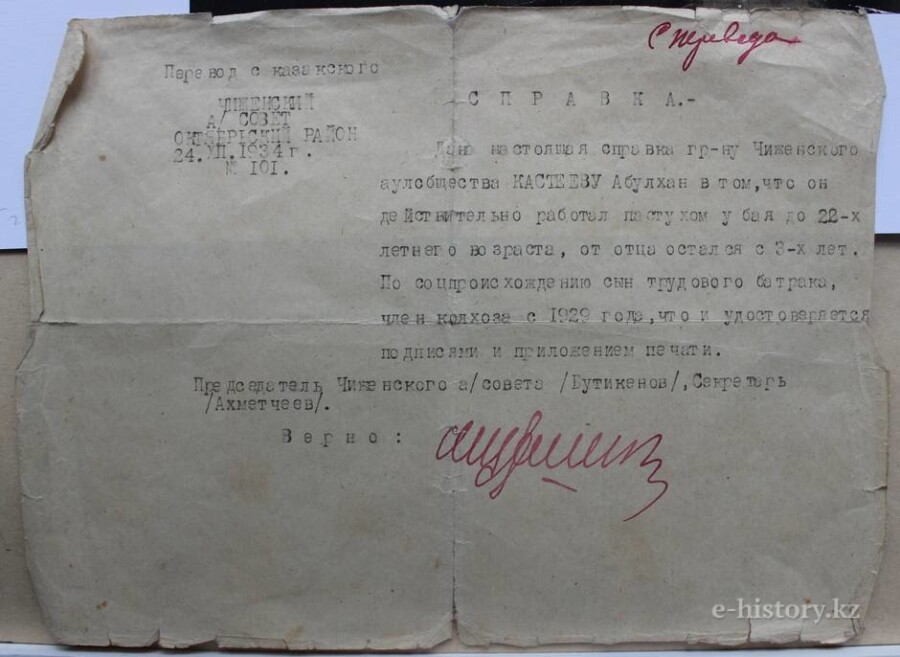 С перевода
Перевод с казакского
ЧИЖЕНСКИЙ
А/ СОВЕТ
ОКТЯБРЬСКИЙ РАЙОН
24.VII.1934 г.
№ 101.
С П Р А В К А.-
Дана настоящая справка гр-ну Чиженского
аулобщества КАСТЕЕВУ Абулхан в том, что он
действительно работал пастухом у бая до 22-х
летнего возраста, от отца остался с 3-х лет.
По соцпроисхождению сын трудового батрака,
член колхоза с 1929 года, что и удостоверяется
подписями и приложением печати.
Председатель Чиженского а/совета /Бутикенов/, Секретарь
/Ахметчеев/.
В е р н о :
e-history.kz